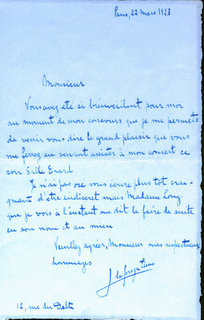 Paris, 22 mars 1923
Monsieur
Vous avez été si bienveillant pour moi
au moment de mon concours que je me permets
de venir vous dire le grand plaisir que vous
me ferez en venant assister à mon concert ce
soir Salle Erard
Je n'ai pas osé vous écrire plus tôt crai-
gnant d'être indiscret mais Madame Long
que je vois à l'instant me dit le faire de suite
en son nom et au mien
Veuillez agréer, Monsieur mes respectueux
hommages
12, rue du Delta